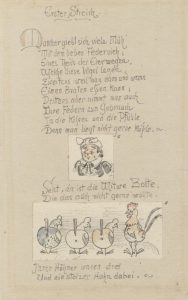 Erster Streich.
Mancher giebt sich viele Müh'
Mit dem lieben Federvieh;
Eines Theils der Eier wegen,
Welche diese Vögel legen,
Zweitens weil man dann und wann
Einen Braten essen kann;
Drittens aber nimmt man auch
Ihre Federn zum Gebrauch
In die Kissen und die Pfühle,
Denn man liegt nicht gerne kühle.
Seht, da ist die Wittwe Bolte,
Die das auch nicht gerne wollte.
Ihrer Hühner waren drei
Und ein stolzer Hahn dabei.